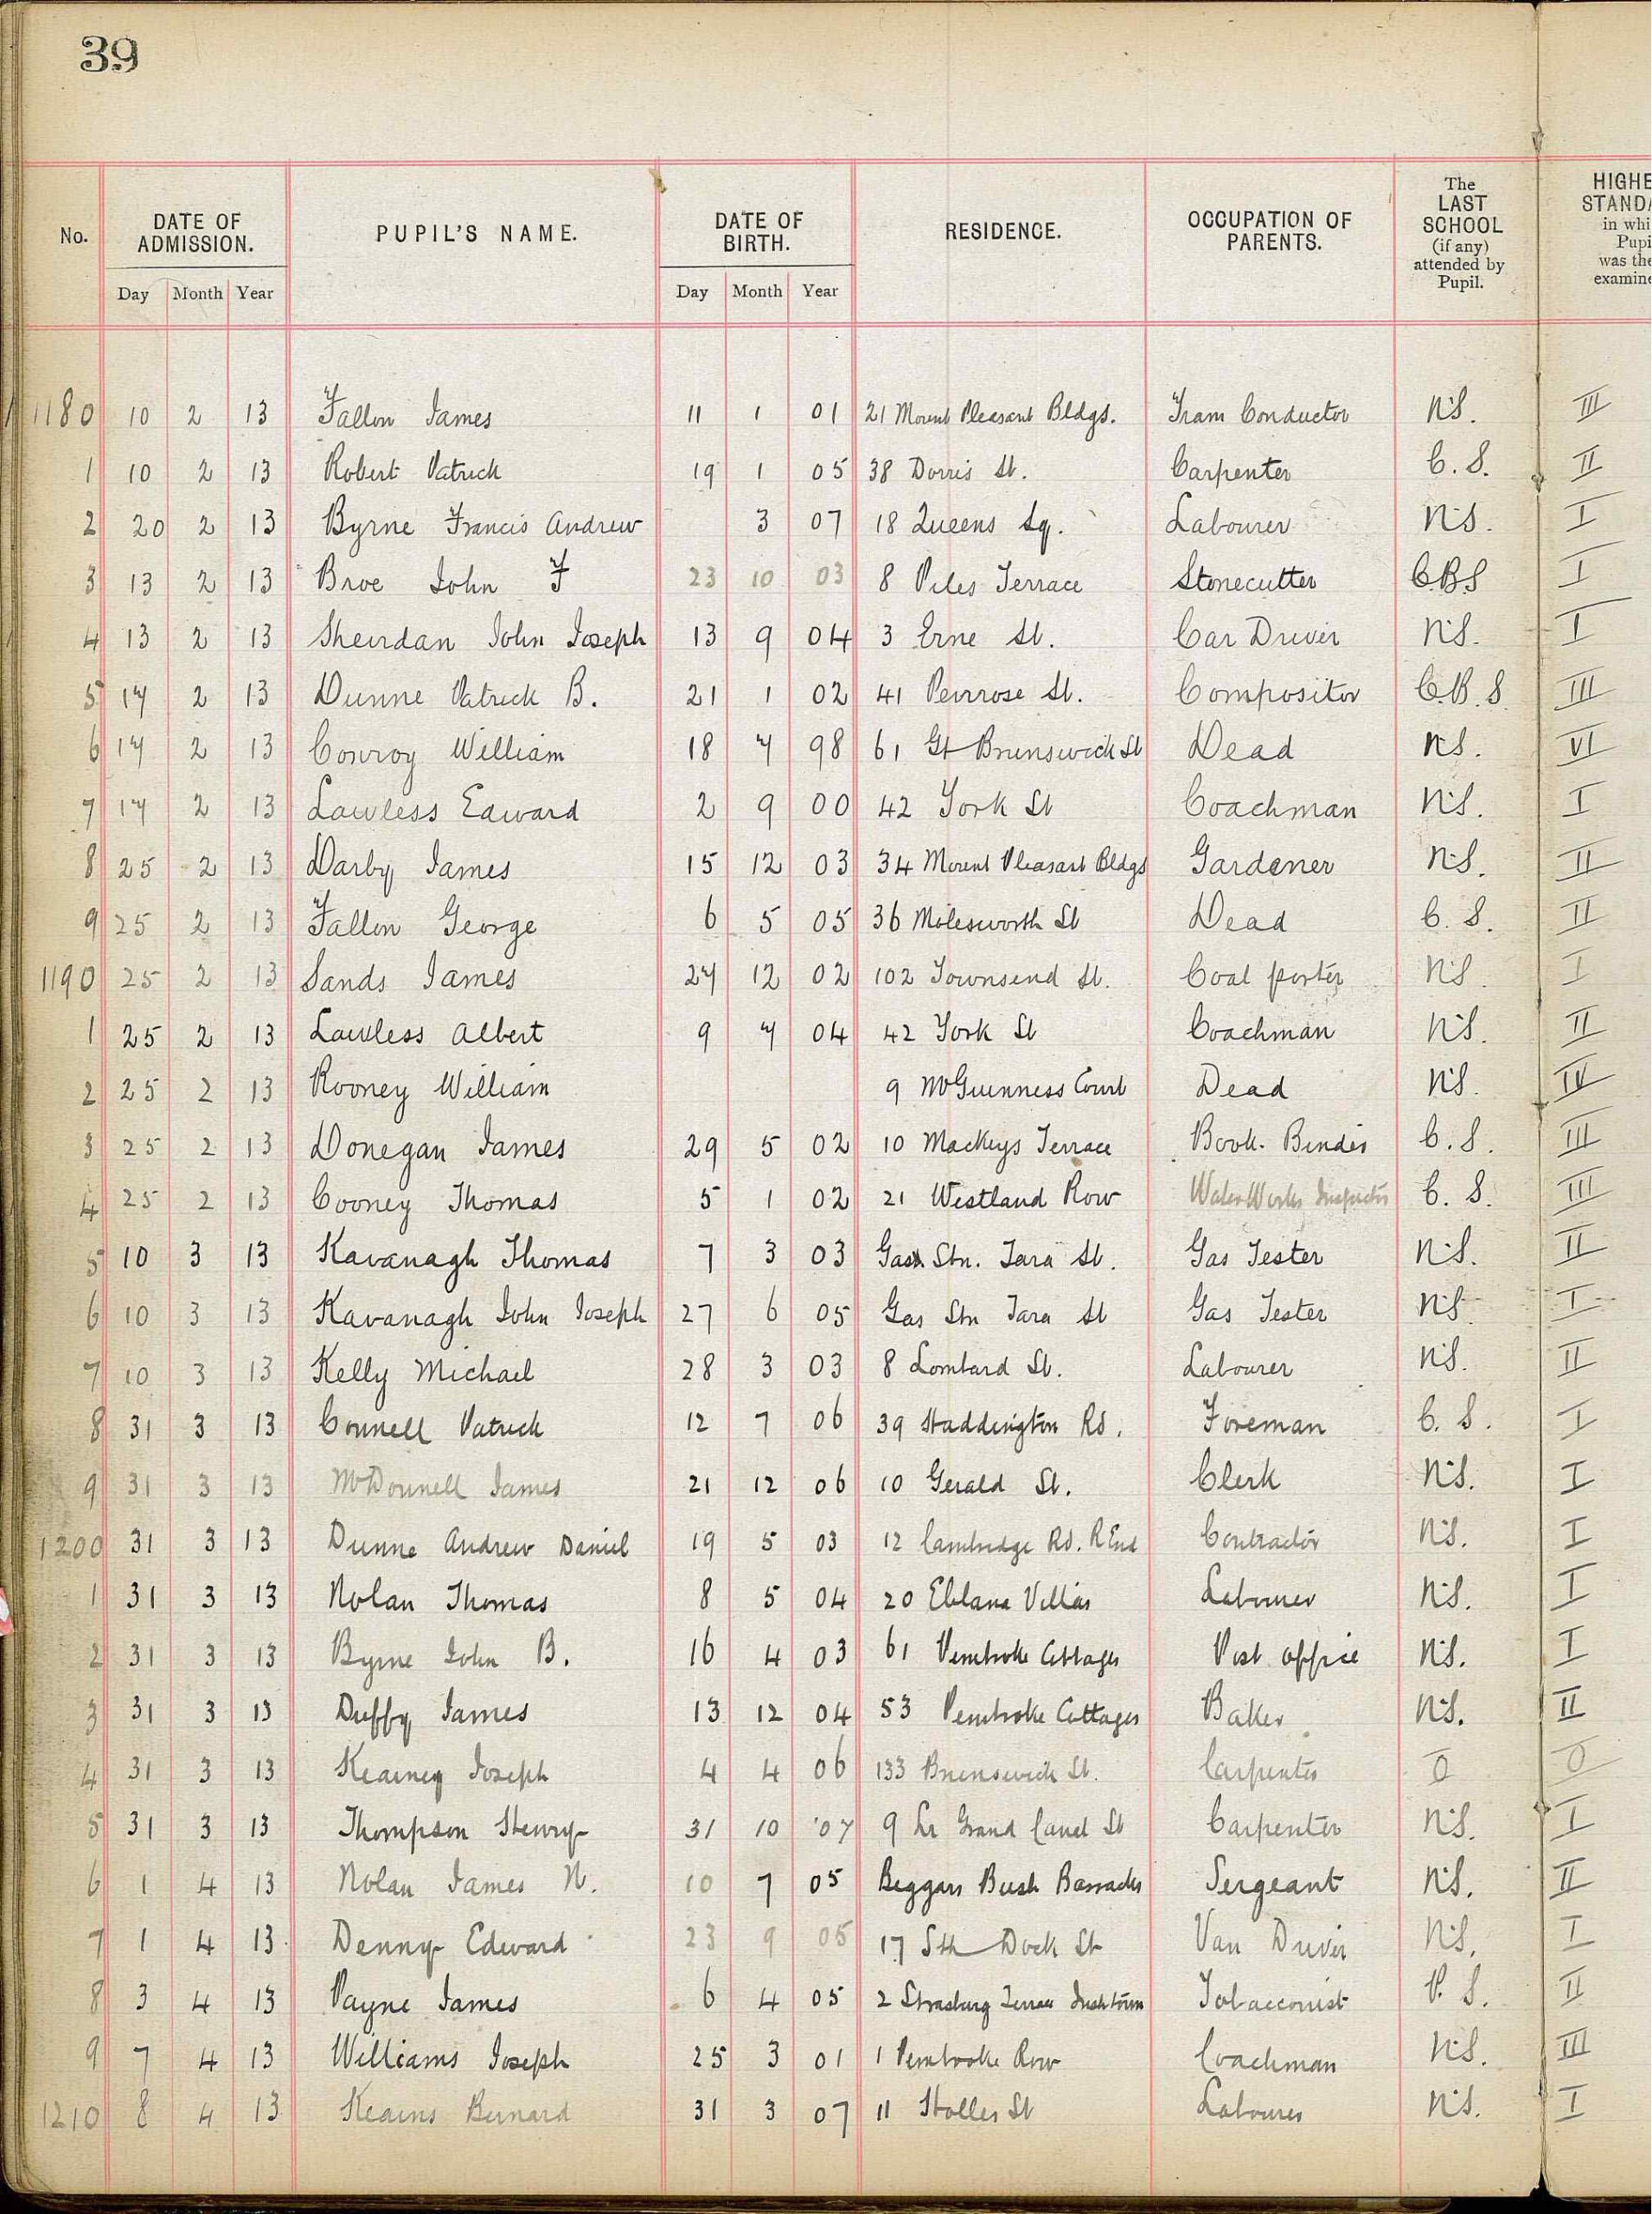 39
No. DATE OF ADMISSION. PUPIL'S NAME. DATE OF BIRTH. RESIDENCE. OCCUPATION OF PARENTS. The LAST SCHOOL (if any) attended by Pupil. HIGHE STANDA in whi Pupi was the examine
Day Month Year Day Month Year
1180 10 2 13 Fallon James 11 1 01 21 Mount Pleasant Bldgs. Tram Conductor N.S. III
1 10 2 13 Robert Patrick 19 1 05 38 Dorris St. Carpenter C.S. II
2 20 2 13 Byrne Francis Andrew 3 07 18 Queens Sq. Labourer N.S. I
3 13 2 13 Broe John F 23 10 03 8 Piles Terrace Stonecutter C.B.S I
4 13 2 13 Sheirdan John Joseph 13 9 04 3 Erne St. Car Driver N.S. I
5 17 2 13 Dunne Patrick B. 21 1 02 41 Penrose St. Compositor C.B.S. III
6 17 2 13 Conroy William 18 7 98 61 Gt Brunswick St Dead N.S. VI
7 17 2 13 Lawless Edward 2 9 00 42 York St Coachman N.S. I
8 25 2 13 Darby James 15 12 03 34 Mount Pleasant Bldgs Gardener N.S. II
9 25 2 13 Fallon George 6 5 05 36 Molesworth St Dead C.S. II
1190 25 2 13 Sands James 27 12 02 102 Townsend St. Coal porter N.S. I
1 25 2 13 Lawless Albert 9 7 04 42 York St Coachman N.S. II
2 25 2 13 Rooney William 9 McGuinness Court Dead N.S. IV
3 25 2 13 Donegan James 29 5 02 10 Mackeys Terrace Book-Binder C.S. III
4 25 2 13 Cooney Thomas 5 1 02 21 Westland Row WaterWorks Inspector C.S. III
5 10 3 13 Kavanagh Thomas 7 3 03 Gas Stn. Tara St. Gas Tester N.S. II
6 10 3 13 Kavanagh John Joseph 27 6 05 Gas Stn Tara St Gas Tester N.S. I
7 10 3 13 Kelly Michael 28 3 03 8 Lombard St. Labourer N.S. II
8 31 3 13 Connell Patrick 12 7 06 39 Haddington Rd. Foreman C.S. I
9 31 3 13 McDonnell James 21 12 06 10 Gerald St. Clerk N.S. I
1200 31 3 13 Dunne Andrew Daniel 19 5 03 12 Cambridge Rd. R.End Contractor N.S. I
1 31 3 13 Nolan Thomas 8 5 04 20 Eblana Villas Labourer N.S. I
2 31 3 13 Byrne John B. 16 4 03 61 Pembroke Cottages Post office N.S. I
3 31 3 13 Duffy James 13 12 04 53 Pembroke Cottages Baker N.S. II
4 31 3 13 Kearney Joseph 4 4 06 133 Brunswick St. Carpenter O O
5 31 3 13 Thompson Henry 31 10 '07 9 Lr Grand Canal St Carpenter N.S. I
6 1 4 13 Nolan James N. 10 7 05 Beggars Bush Barracks Sergeant N.S. II
7 1 4 13 Denny Edward 23 9 05 17 Sth Dock St Van Driver N.S. I
8 3 4 13 Payne James 6 4 05 2 Strasburg Terrace Irishtown Tobacconist P.S. II
9 7 4 13 Williams Joseph 25 3 01 1 Pembroke Row Coachman N.S. III
1210 8 4 13 Kearns Bernard 31 3 07 11 Holles St Labourer N.S. I